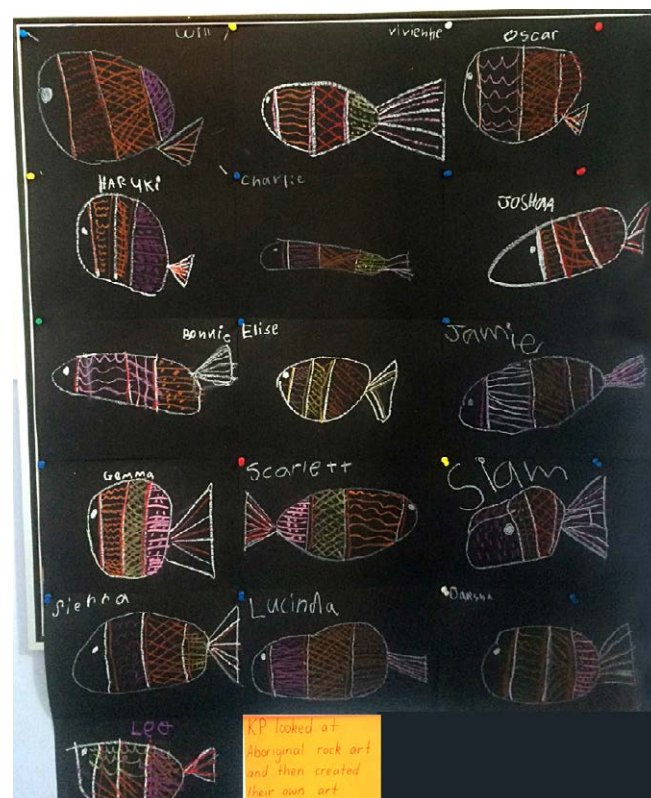 Will
Vivienne
Oscar
HARUKI
Charlie
JOSHUA
Bonnie
Elise
Jamie
Gemma
Scarlett
Siam
Sienna
Lucinda
Leo
KP looked at
Aboriginal rock art
and then created
their own art